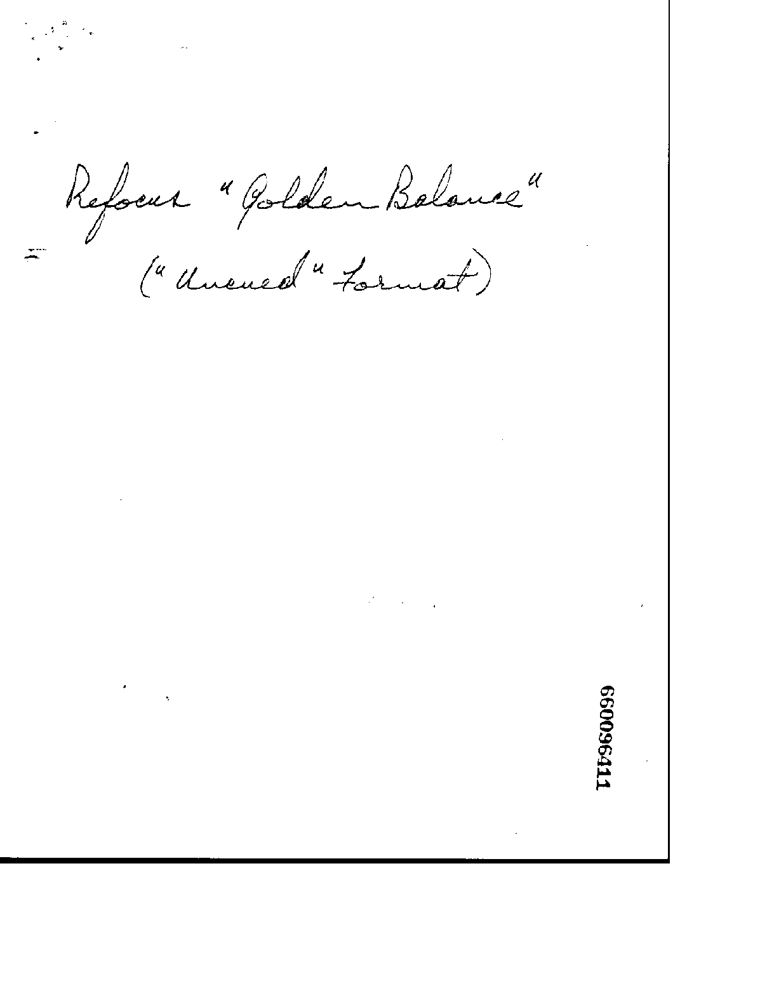 Refocus "Golden Balance"
("Uncued" Format)
660096411